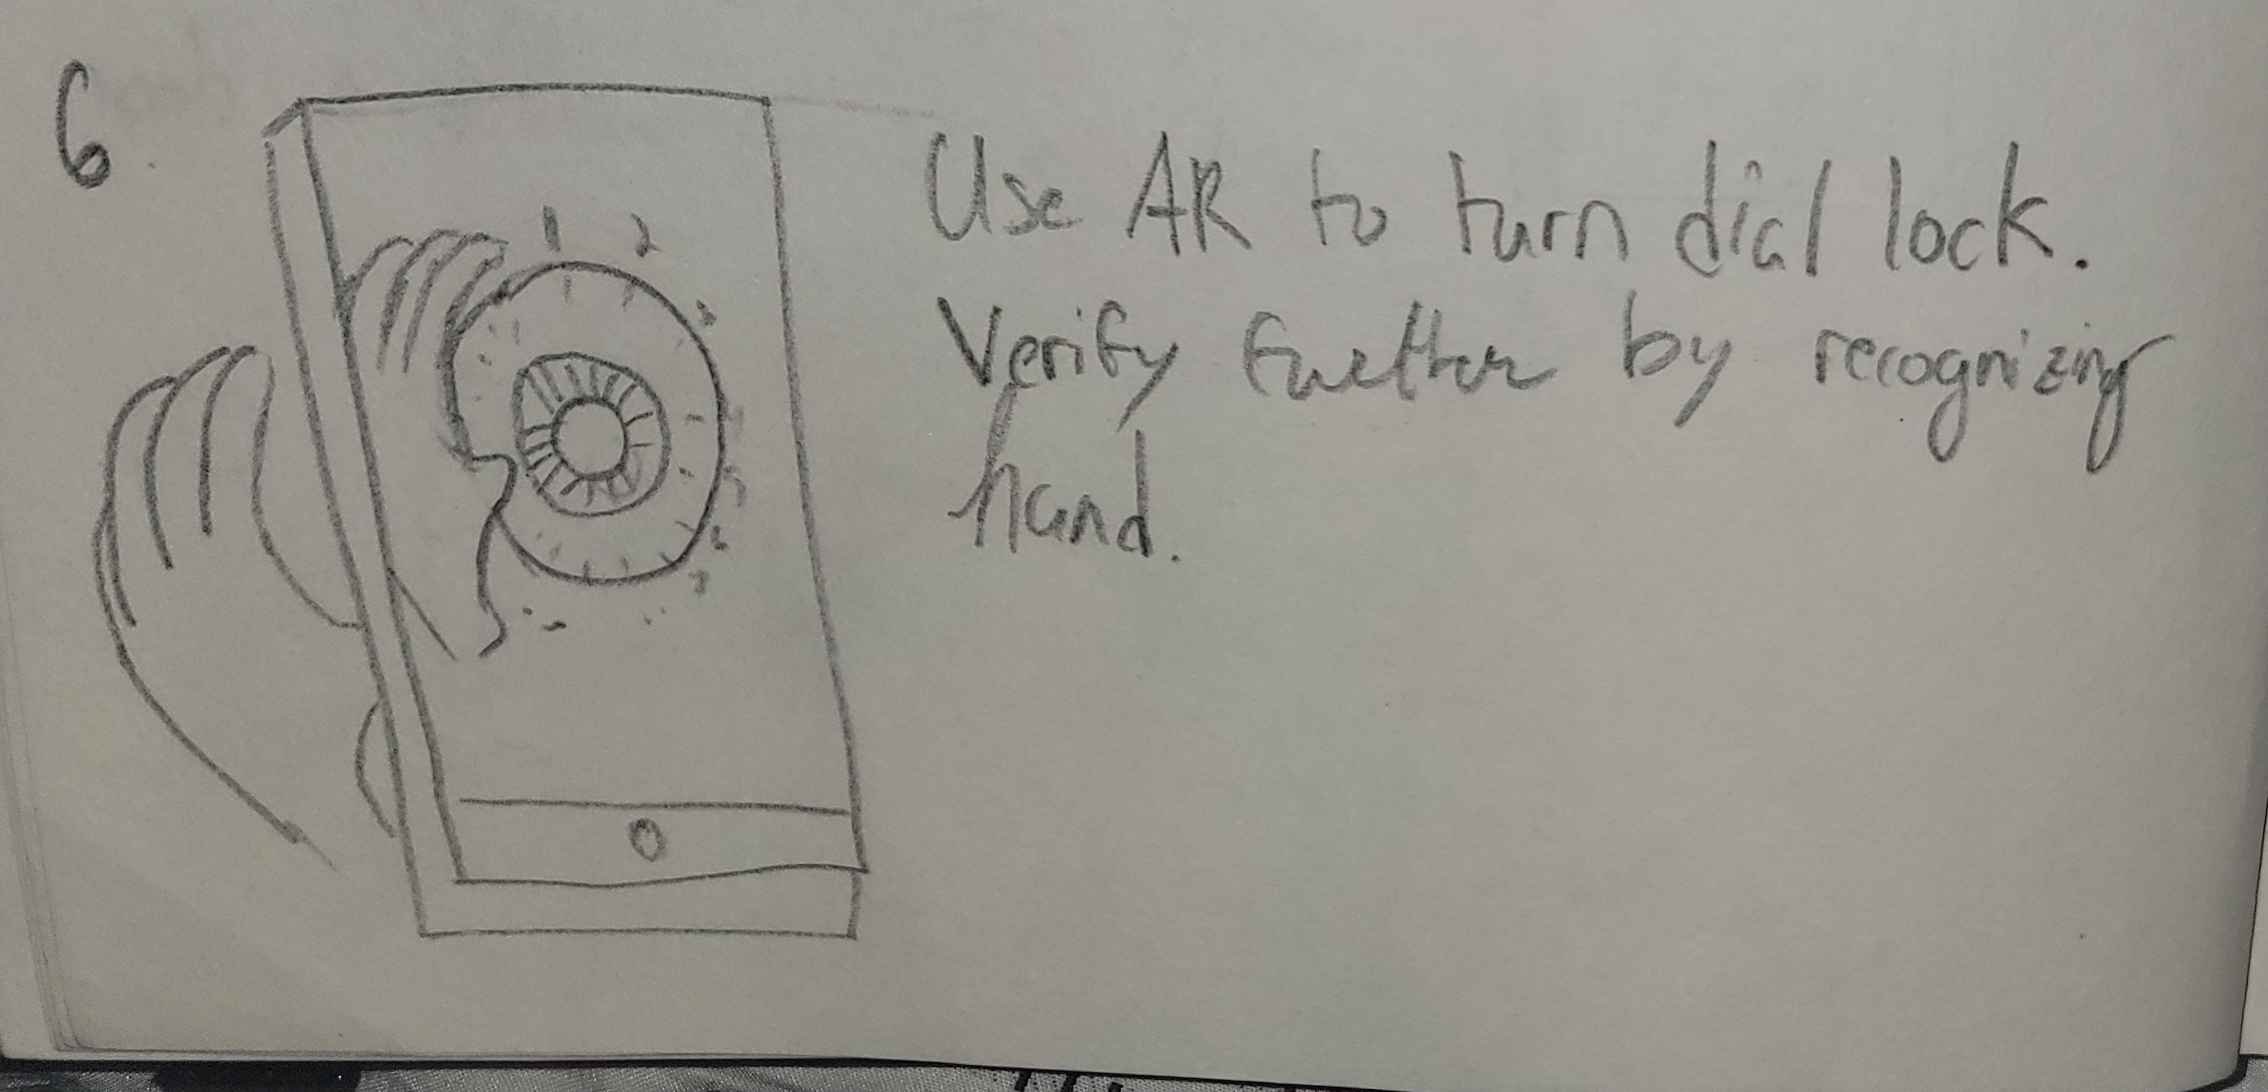 6.
Use AR to turn dial lock.
Verify further by recognizing
hand.
1 2
3
4
5
6
7